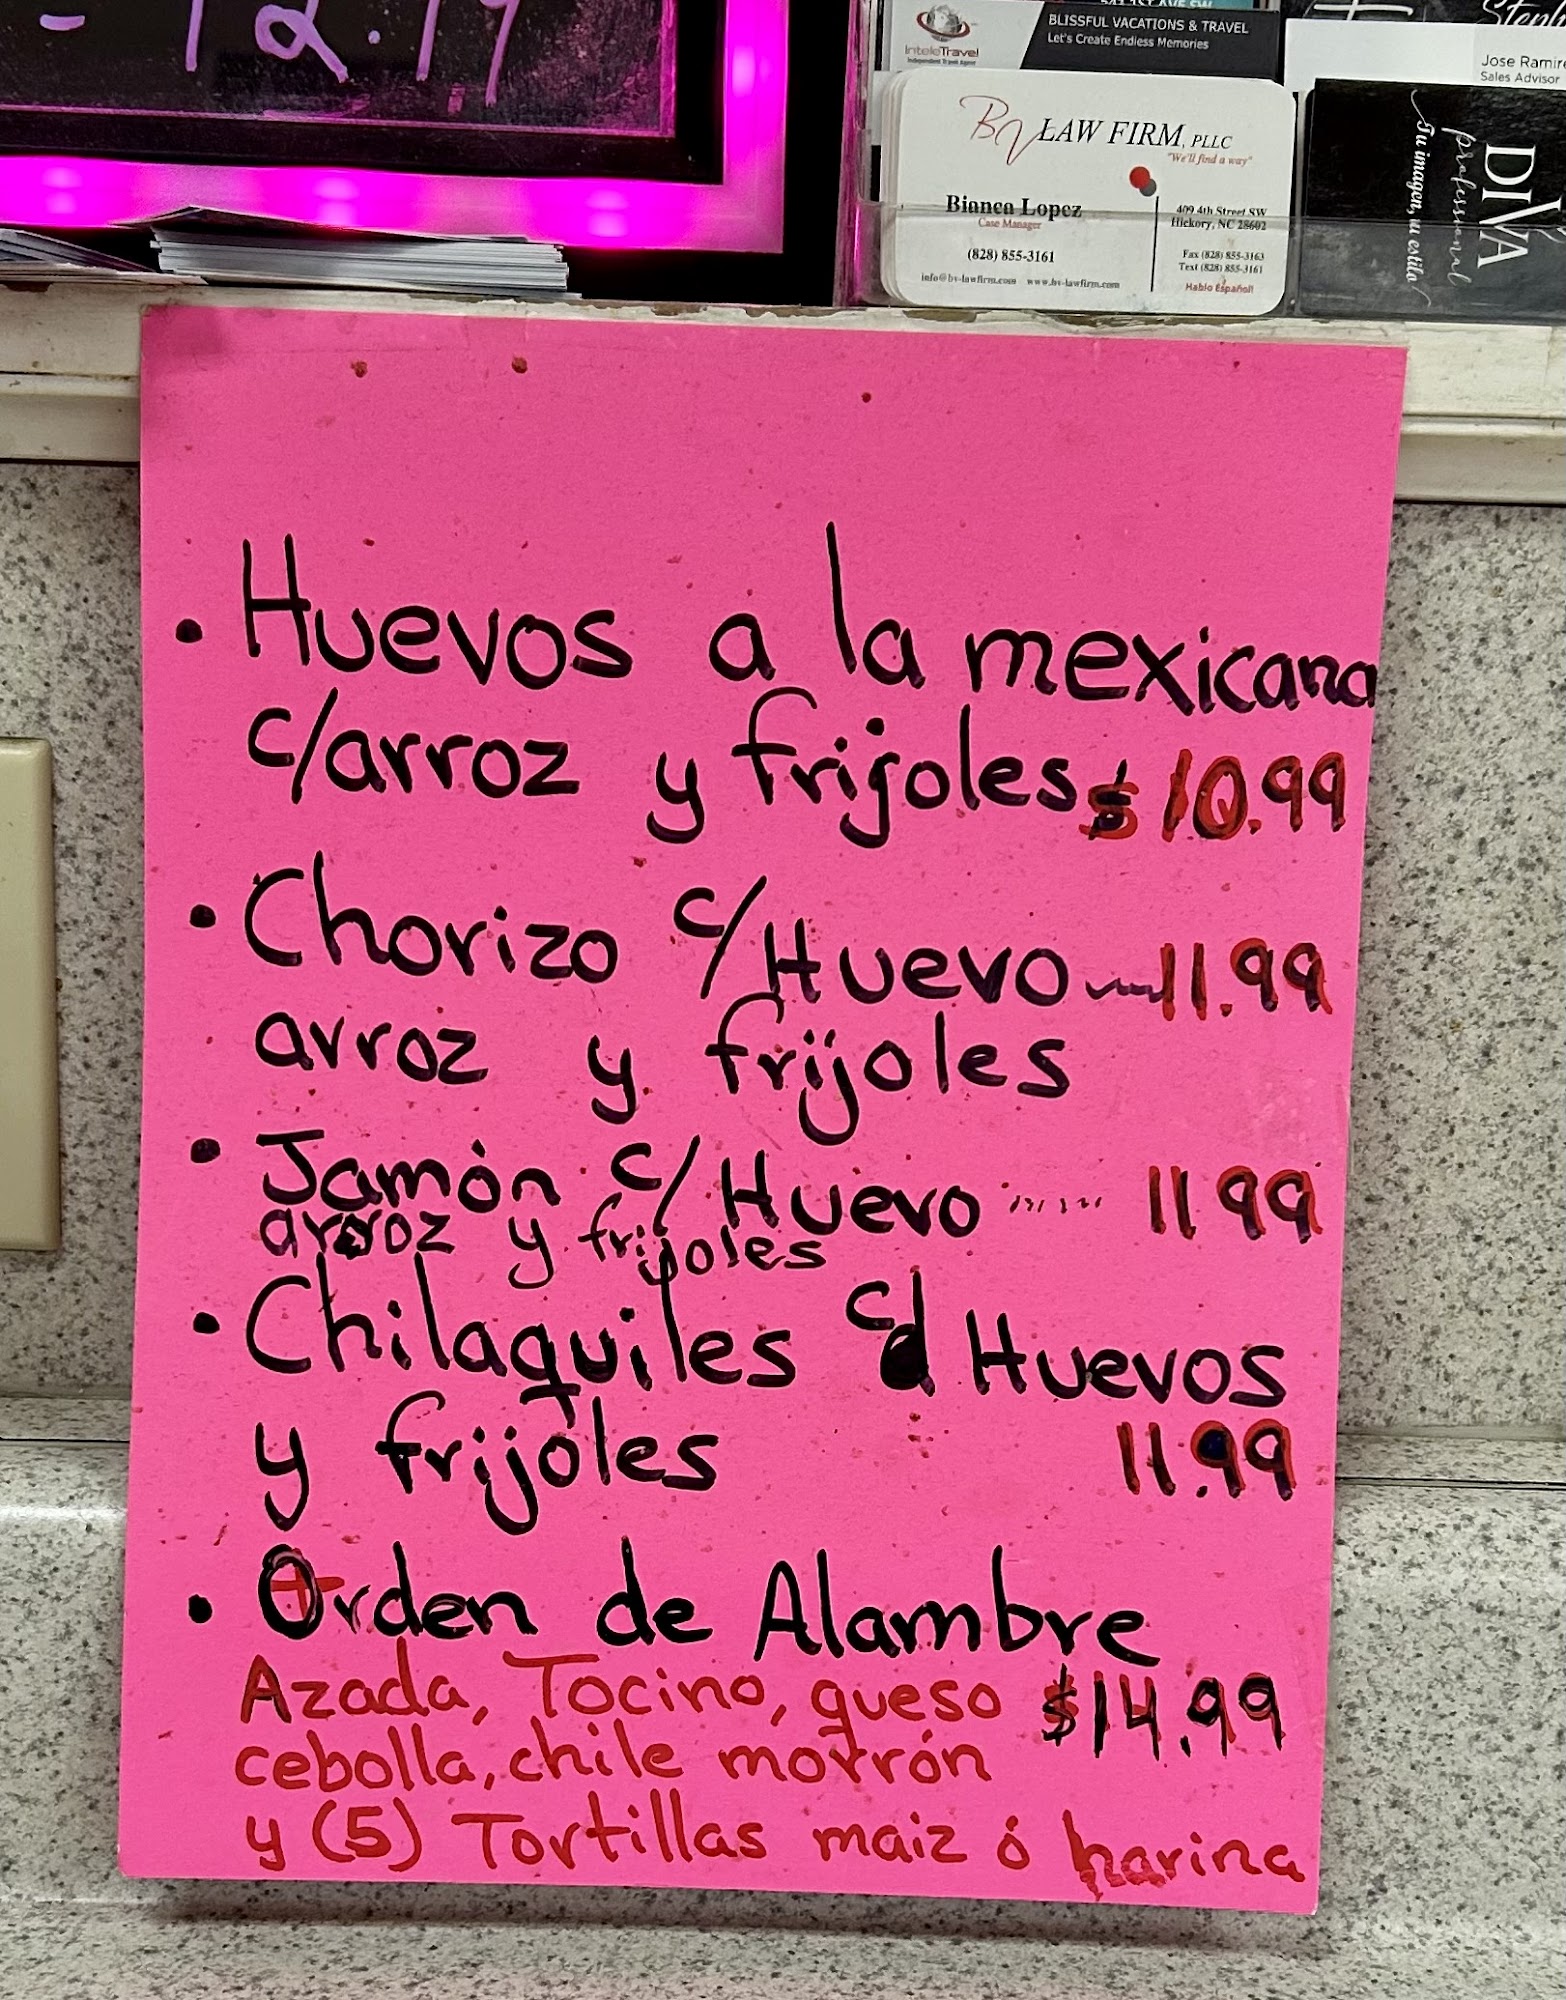 - 12.19
InteleTravel
Independent Travel Agent
BLISSFUL VACATIONS & TRAVEL
Let's Create Endless Memories
Jose Ramire
Sales Advisor
BV LAW FIRM, PLLC
"We'll find a way"
Bianca Lopez
Case Manager
(828) 855-3161
info@bv-lawfirm.com www.bv-lawfirm.com
409 4th Street SW
Hickory, NC 28602
Fax (828) 855-3163
Text (828) 855-3161
Hablo Español!
DIVA
professional
Tu imagen, tu estilo
• Huevos a la mexicana
c/arroz y frijoles $10.99
• Chorizo c/Huevo 11.99
arroz y frijoles
• Jamón c/Huevo ...... 11 99
arroz y frijoles
• Chilaquiles c/ Huevos
y frijoles 11.99
• Orden de Alambre
Azada, Tocino, queso $14.99
cebolla, chile morrón
y (5) Tortillas maiz ó harina